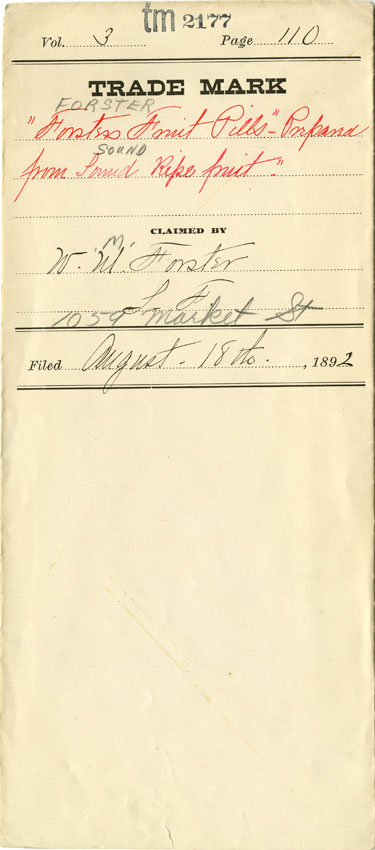 tm 2177
Vol. 3 Page 110
TRADE MARK
FORSTER
"Forsters Fruit Pills" - Prepared
SOUND
from Sound Ripe fruit."
CLAIMED BY
M
W. "M". Forster
S. F.
1059 Market St
Filed August. 18th. , 1892